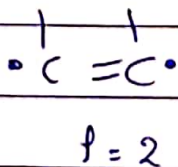 • C = C •
f = 2